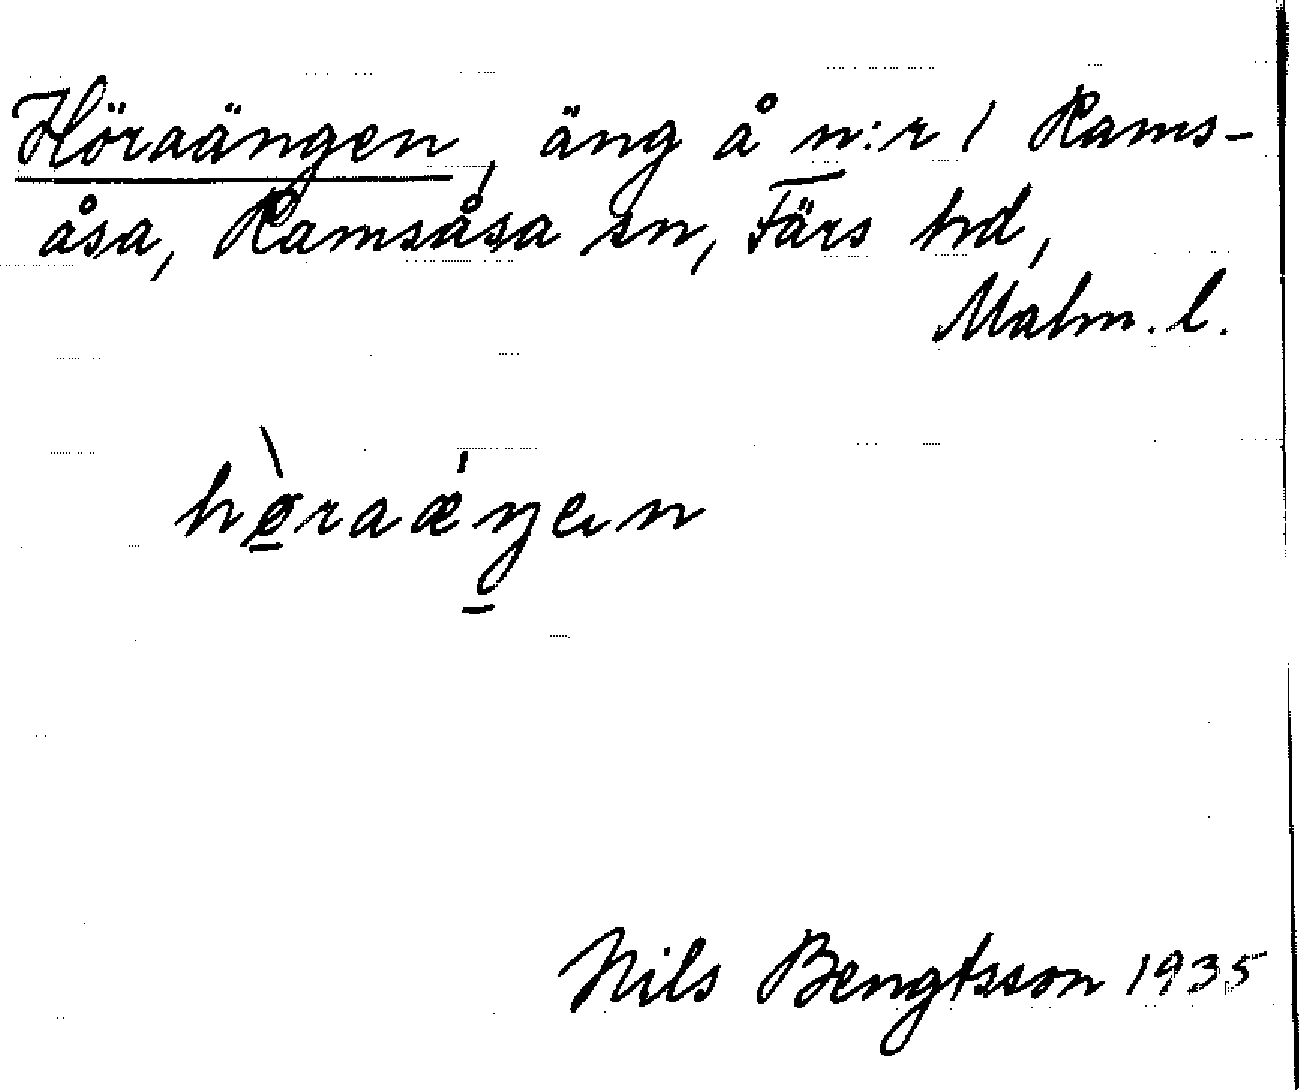 Höraängen, äng å n:r 1 Rams-
åsa, Ramsåsa sn, Färs hd,
Malm. l.
hø̱̀raǽŋ̱en
Nils Bengtsson 1935